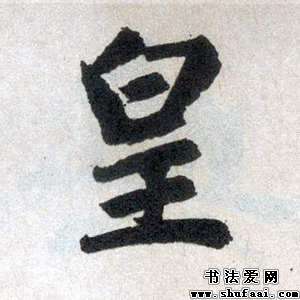 皇
书法爱网
www.shufaai.com